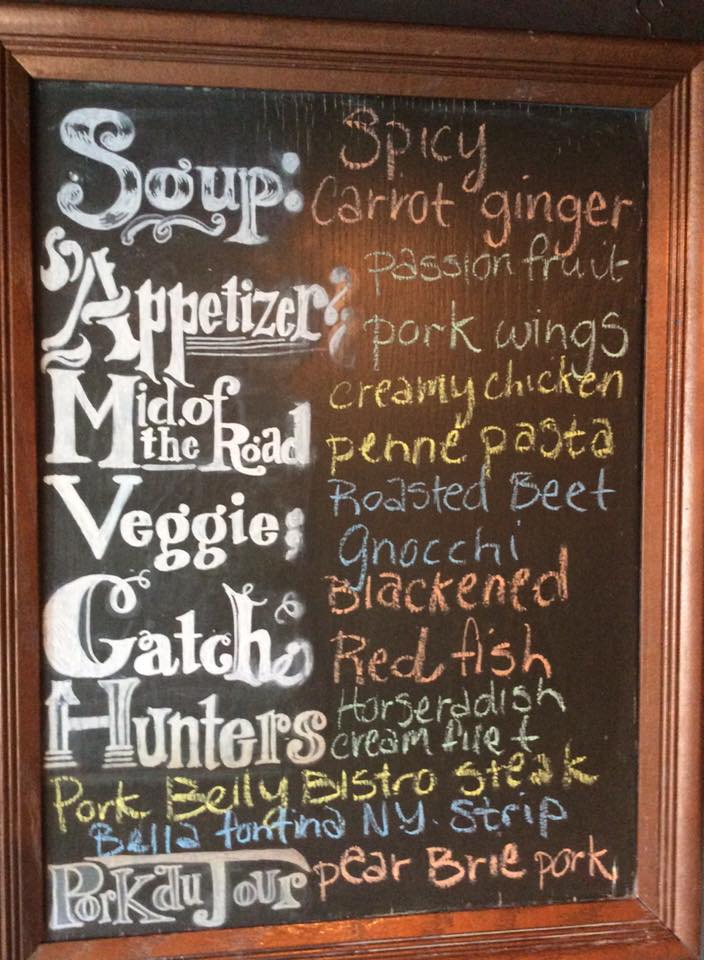 Soup: Spicy
Carrot ginger
Appetizer: passion fruit
pork wings
Mid. of the Road creamy chicken
penne pasta
Veggie: Roasted Beet
gnocchi
Catch: Blackened
Red fish
Hunters Horseradish
cream filet
Pork Belly Bistro steak
Bella fontina N.Y. Strip
Pork du Jour pear Brie pork